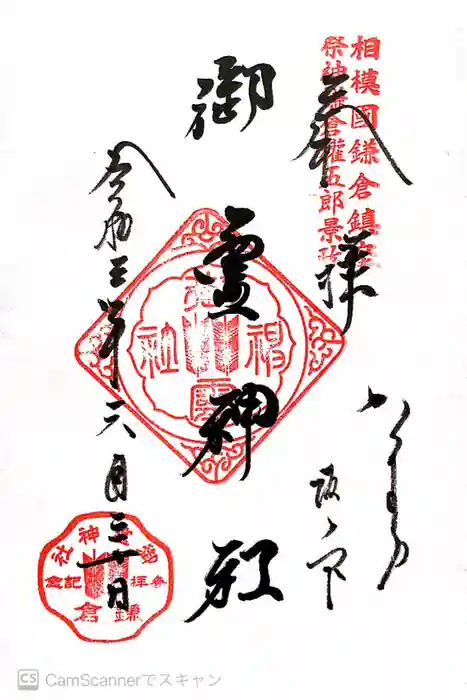 相模國鎌倉鎮座
祭神鎌倉權五郎景政
奉拝
かまくら
坂ノ下
御霊神社
令和三年六月三十日
神社
参拝記念
鎌倉
CS CamScannerでスキャン